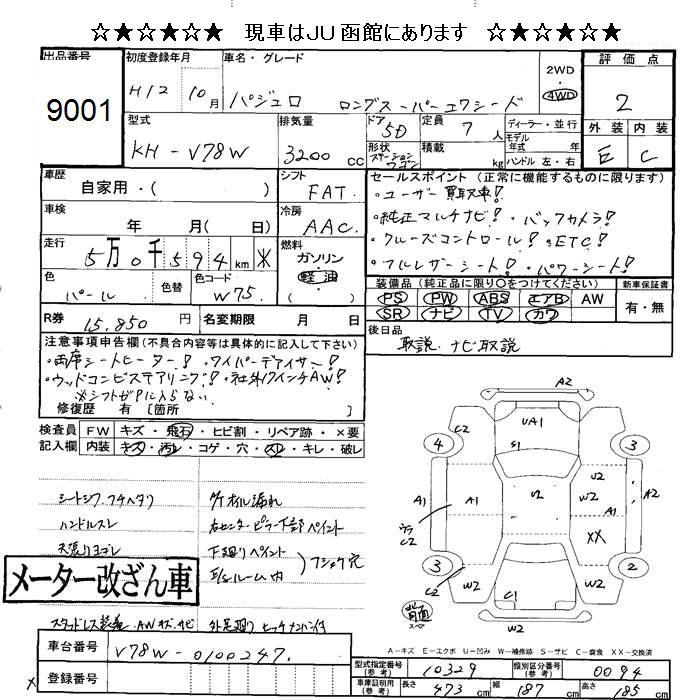 ☆★☆★☆★ 現車はJU函館にあります ☆★☆★☆★
出品番号
9001
初度登録年月
H12 10月
車名・グレード
パジェロ ロングスーパーエクシード
2WD
・
4WD
評価点
2
外装 内装
E C
型式
KH-V78W
排気量
3200 cc
ドア
5D
形状
ステーションワゴン
定員
7 人
積載
kg
ディーラー・並行
モデル
年式 年
ハンドル 左・右
車歴
自家用・( )
シフト
FAT.
車検
年 月( 日)
冷房
AAC.
走行
5万0千594 km ※
燃料
ガソリン
軽油
( )
色
パール
色替
色コード
W75.
R券
15,850 円
名変期限 月 日
セールスポイント (正常に機能するものに限ります)
・ユーザー買取車!
・純正マルチナビ!・バックカメラ!
・クルーズコントロール!・ETC!
・フルレザーシート!・パワーシート!
装備品(純正品に限り○をつけてください)
PS PW ABS エアB AW
SR ナビ TV カワ
新車保証書
有・無
後日品
取説 ナビ取説
注意事項申告欄(不具合内容等は具体的に記入して下さい)
・両席シートヒーター!・ワイパーデアイサー!
・ウッドコンビステアリング!・社外17インチAW!
※シフトがPに入らない
修復歴 有 [箇所 ]
検査員
記入欄
FW キズ・飛石・ヒビ割・リペア跡・×要
内装 キズ・汚レ・コゲ・穴・スレ・キレ・破レ
シートシワ.フチヘタリ
ハンドルスレ
天張りヨゴレ
メーター改ざん車
スタッドレス装着.AWキズ.サビ
オイル漏れ
右センターピラー下部ペイント
下廻りペイント
E/gルーム内
フショク穴
外足廻り ヒッチメンバー付
A2
UA1
S1
C2
4
3
A1
A1
U2
U2
W2
A2
ウラ
C2
XX
3
2
C2
W2
W2
C1
W2
背面
スペア
A-キズ E-エクボ U-凹み W-補修跡 S-サビ C-腐食 XX-交換済
車台番号
V78W-0100247.
登録番号
型式指定番号
(参考)
10329
類別区分番号
(参考)
0094
車庫証明用
(参考)
長さ 473 cm 幅 187 cm 高さ 185 cm